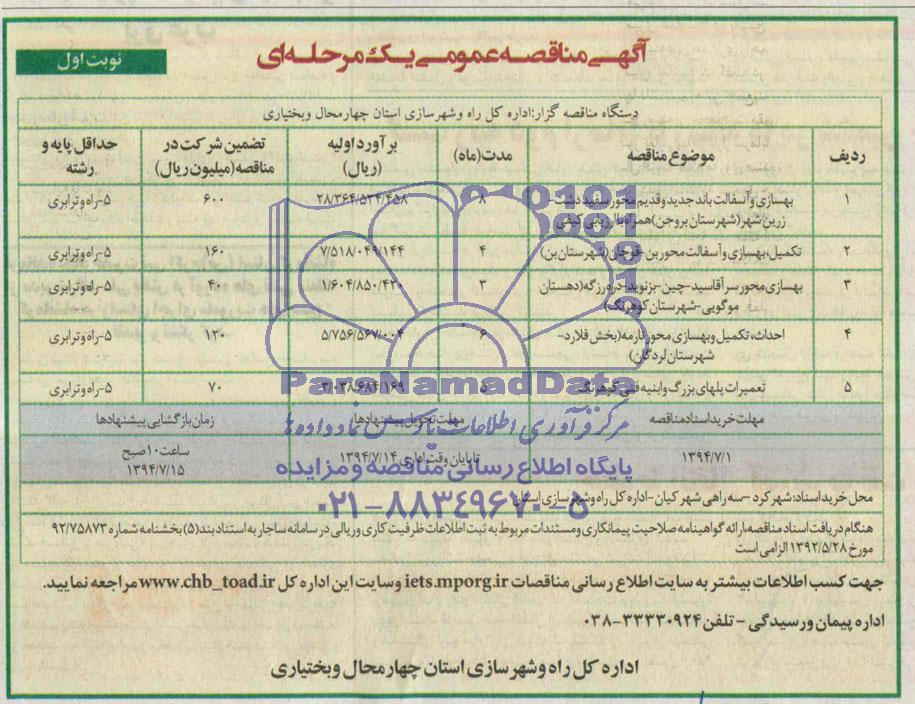 نوبت اول
آگهی مناقصه عمومی یک مرحله‌ای
دستگاه مناقصه گزار: اداره کل راه وشهرسازی استان چهارمحال وبختیاری
ردیف موضوع مناقصه مدت(ماه) برآورد اولیه (ریال) تضمین شرکت در مناقصه(میلیون ریال) حداقل پایه و رشته
۱ بهسازی و آسفالت باند جدید وقدیم محور سفید دشت- ۸ ۲۸/۳۶۴/۵۳۴/۴۵۸ ۶۰۰ ۵-راه وترابری
زرین شهر(شهرستان بروجن)همراه با ارزیابی کیفی
۲ تکمیل، بهسازی و آسفالت محور بن-قوچان(شهرستان بن) ۴ ۷/۵۱۸/۰۴۹/۱۴۴ ۱۶۰ ۵-راه وترابری
۳ بهسازی محور سرآقاسید-چین-بزنوید-دره رزگه(دهستان ۳ ۱/۶۰۴/۸۵۰/۴۲۰ ۴۰ ۵-راه وترابری
موگویی-شهرستان کوهرنگ)
۴ احداث، تکمیل وبهسازی محور نارمه(بخش فلارد- ۶ ۵/۷۵۶/۵۶۷/۰۰۴ ۱۲۰ ۵-راه وترابری
شهرستان لردگان)
۵ تعمیرات پلهای بزرگ وابنیه فنی کوهرنگ ۵ ۳/۰۳۸/۶۸۴/۱۶۹ ۷۰ ۵-راه وترابری
مهلت خرید اسناد مناقصه مهلت تحویل پیشنهادها زمان بازگشایی پیشنهادها
۱۳۹۴/۷/۱ تا پایان وقت اداری ۱۳۹۴/۷/۱۴ ساعت ۱۰ صبح
۱۳۹۴/۷/۱۵
محل خرید اسناد: شهرکرد-سه راهی شهرکیان-اداره کل راه وشهرسازی استان
هنگام دریافت اسناد مناقصه، ارائه گواهینامه صلاحیت پیمانکاری ومستندات مربوط به ثبت اطلاعات ظرفیت کاری وریالی در سامانه ساجار به استناد بند(۵) بخشنامه شماره ۹۲/۷۵۸۷۳
مورخ ۱۳۹۲/۵/۲۸ الزامی است
جهت کسب اطلاعات بیشتر به سایت اطلاع رسانی مناقصات iets.mporg.ir وسایت این اداره کل www.chb_toad.ir مراجعه نمایید.
اداره پیمان ورسیدگی-تلفن ۳۳۳۳۰۹۲۴-۰۳۸
اداره کل راه وشهرسازی استان چهارمحال وبختیاری
ParsNamadData
مرکز فرآوری اطلاعات پارس نماد داده ها
پایگاه اطلاع رسانی مناقصه و مزایده
۰۲۱-۸۸۳۴۹۶۷۰-۵